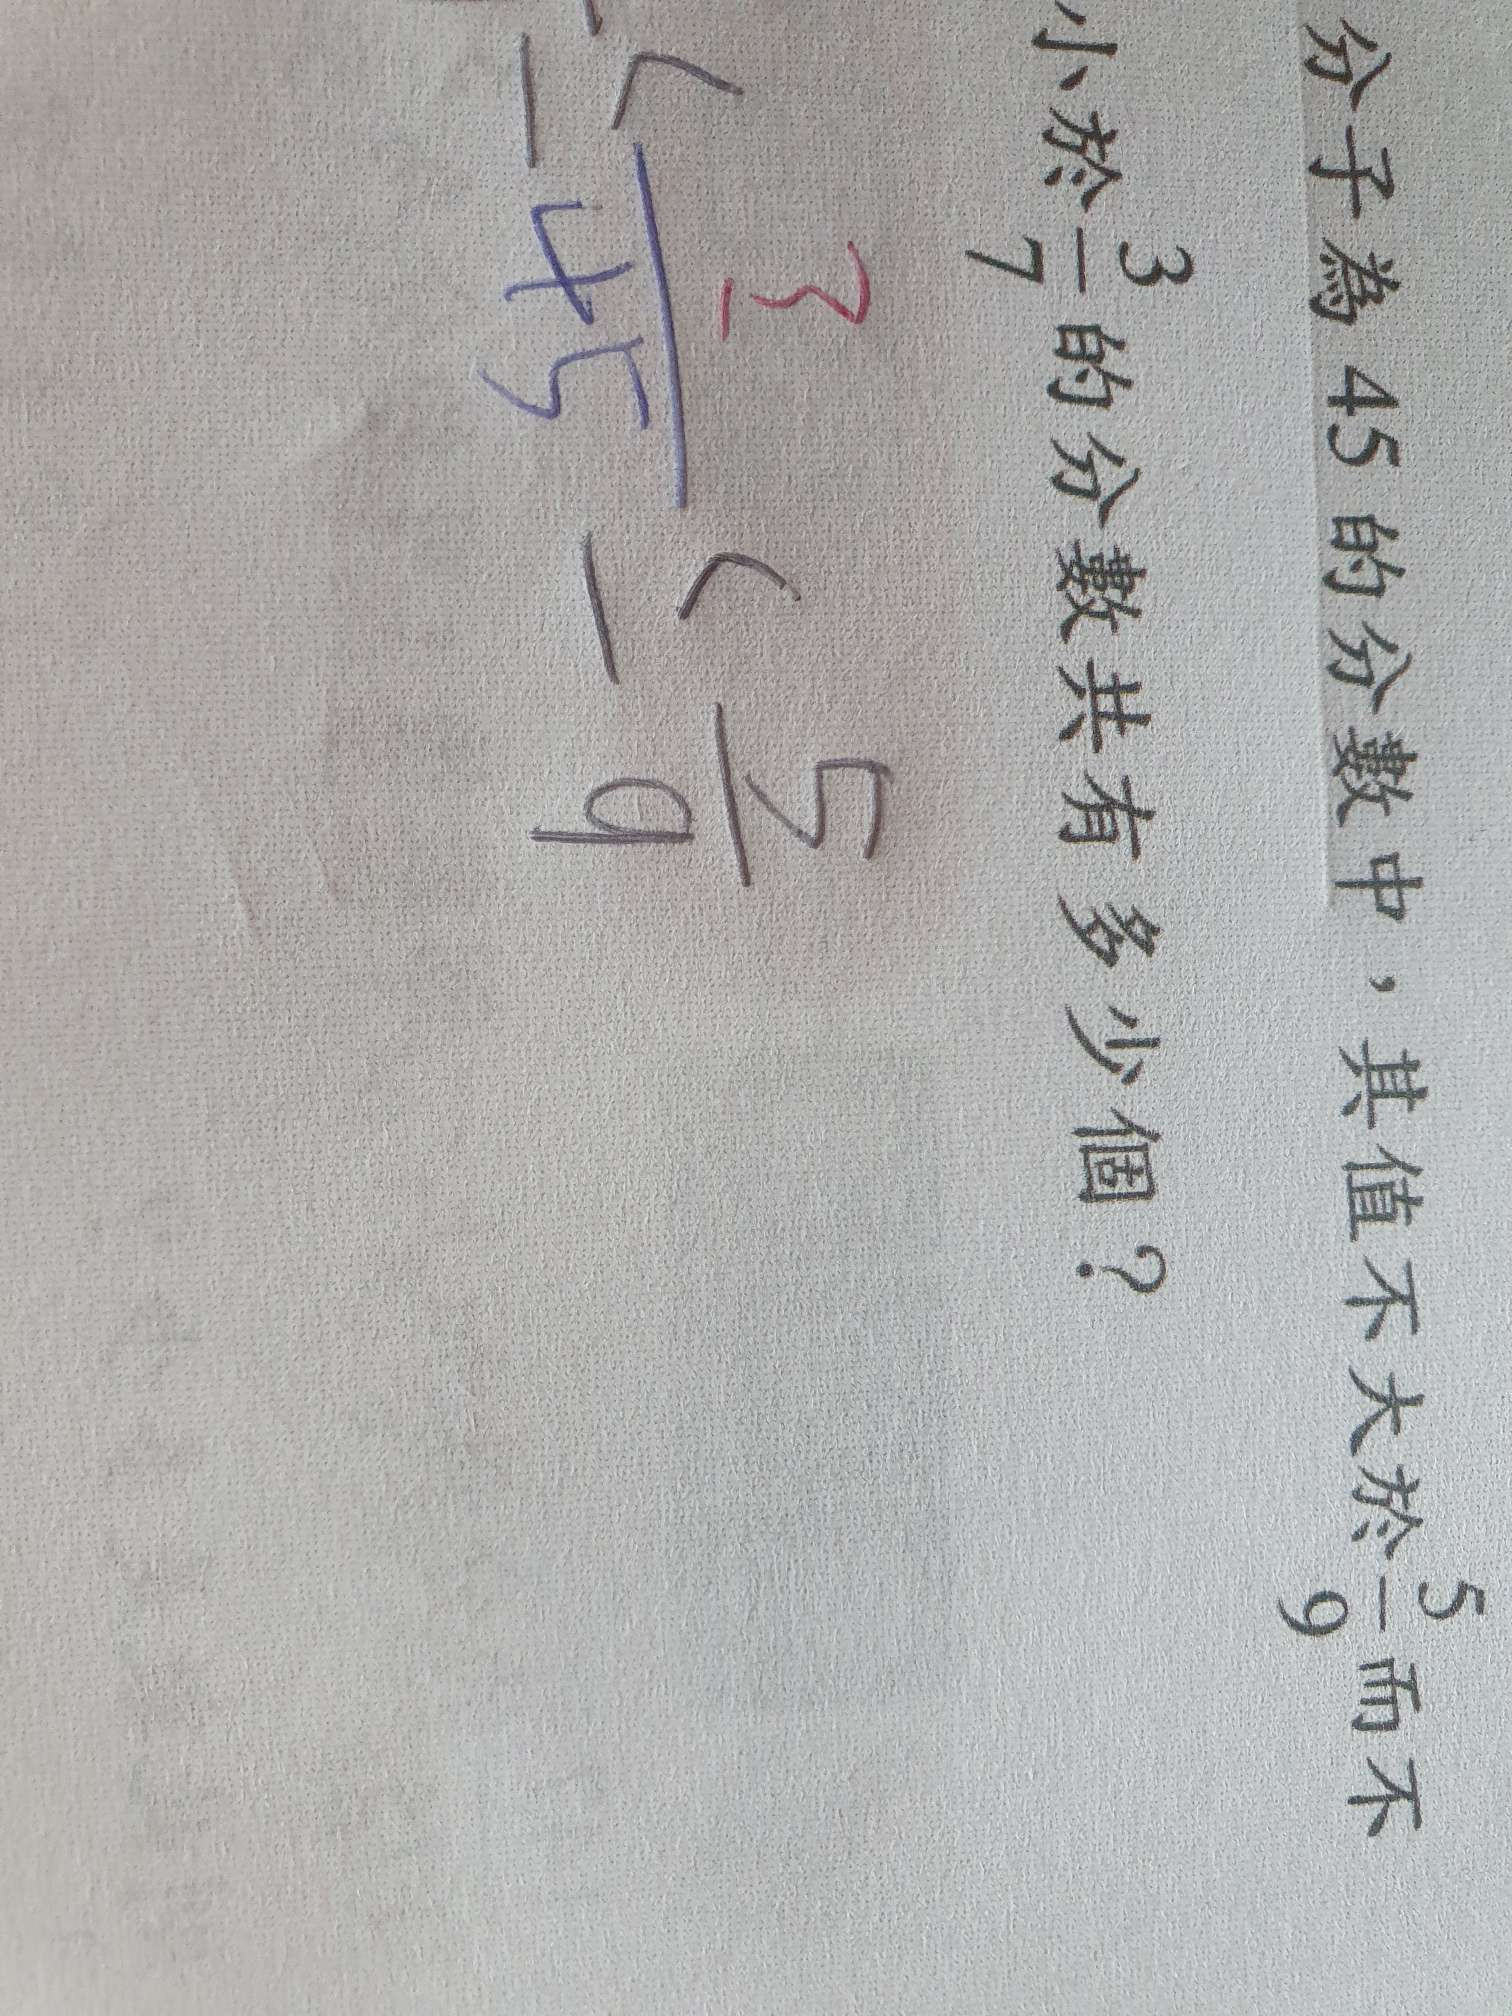 分子為45的分數中，其值不大於5/9而不
小於3/7的分數共有多少個？
≤ ?/45 ≤ 5/9